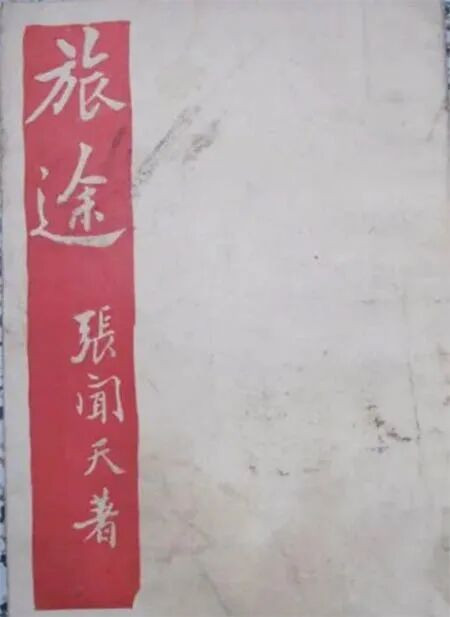 旅途
張聞天著